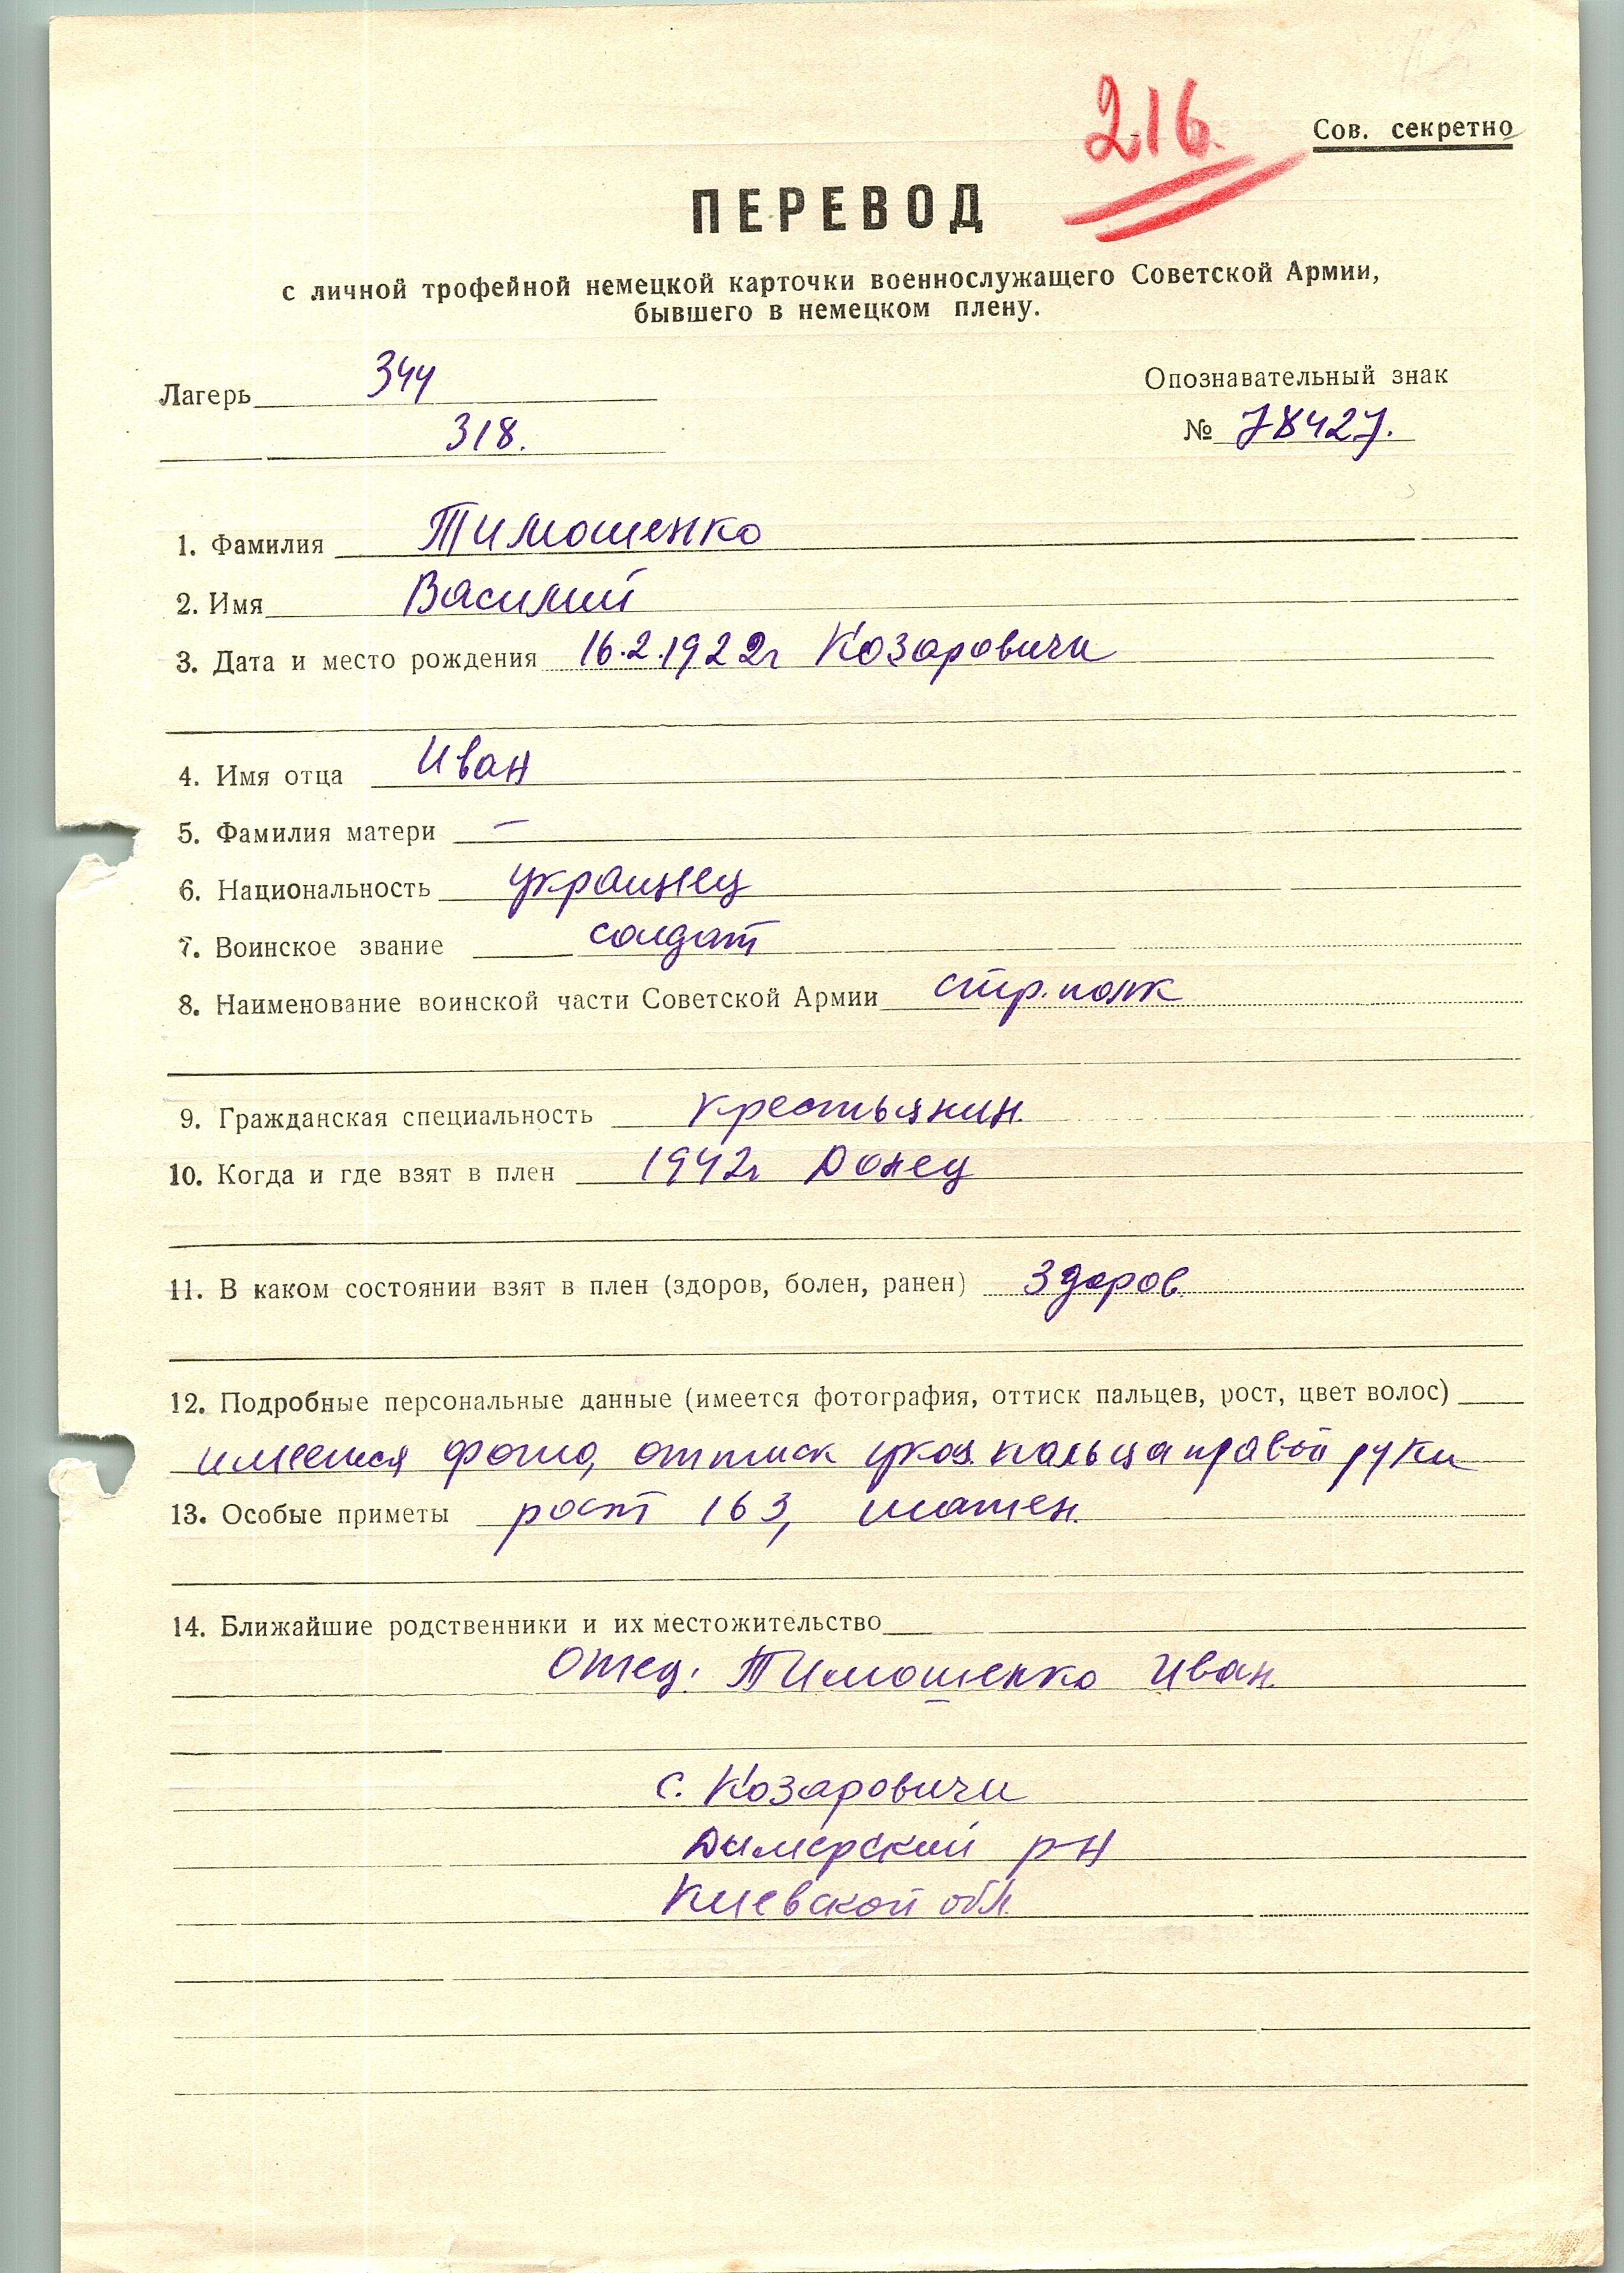 216.
Сов. секретно
ПЕРЕВОД
с личной трофейной немецкой карточки военнослужащего Советской Армии,
бывшего в немецком плену.
Лагерь 344
318.
Опознавательный знак
№ 78427.
1. Фамилия Тимошенко
2. Имя Василий
3. Дата и место рождения 16.2.1922г Козаровичи
4. Имя отца Иван
5. Фамилия матери —
6. Национальность украинец
7. Воинское звание солдат
8. Наименование воинской части Советской Армии стр. полк
9. Гражданская специальность крестьянин.
10. Когда и где взят в плен 1942г Донец
11. В каком состоянии взят в плен (здоров, болен, ранен) здоров.
12. Подробные персональные данные (имеется фотография, оттиск пальцев, рост, цвет волос)
имеется фото, оттиск указ. пальца правой руки
13. Особые приметы рост 163, шатен.
14. Ближайшие родственники и их местожительство
Отец: Тимошенко Иван.
с. Козаровичи
Дымерский р-н
Киевской обл.